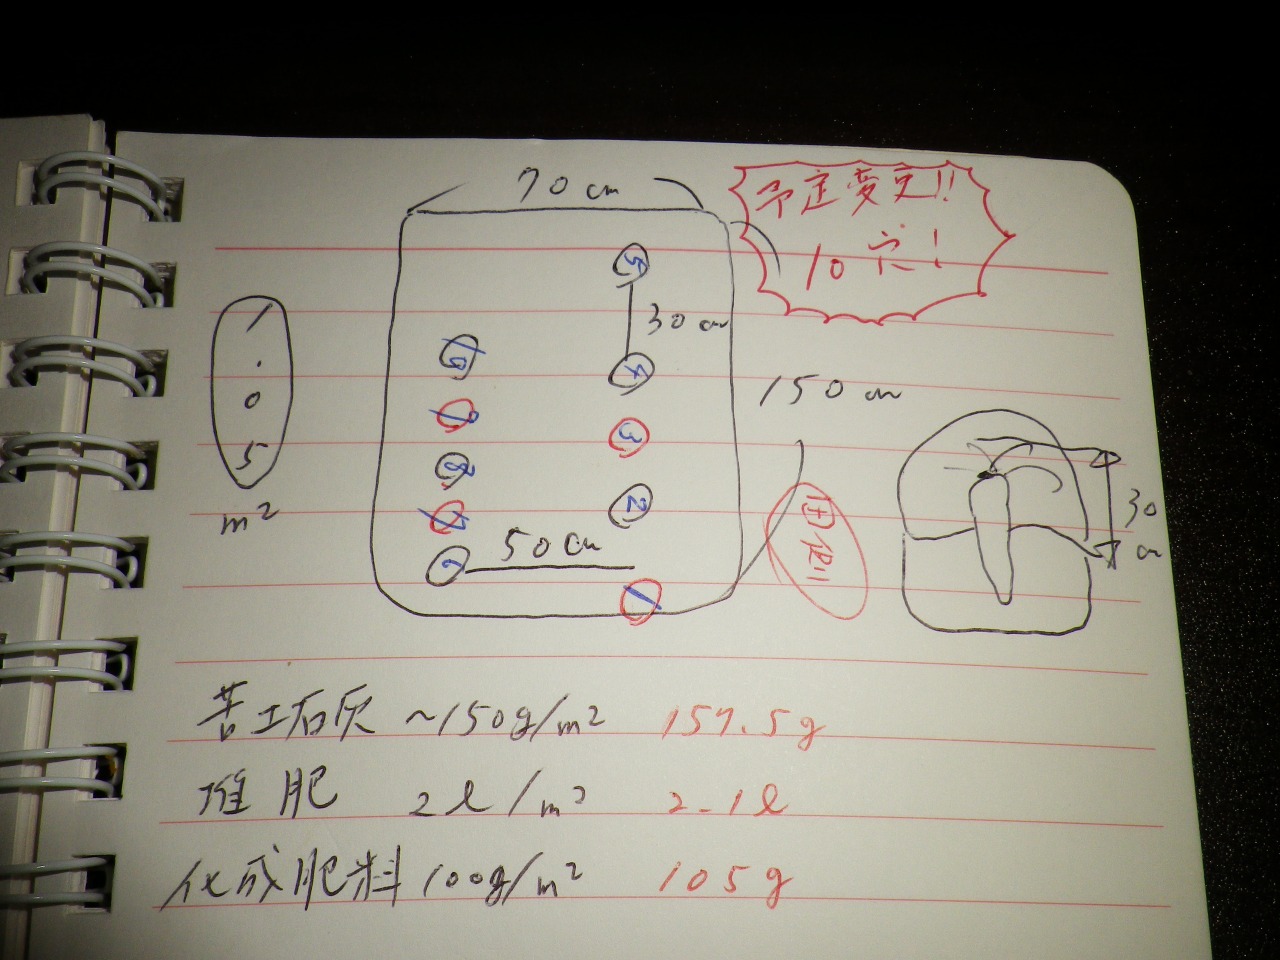 70cm
予定変更!!
10穴!
5
30cm
4
10
9
3
8
2
7
50cm
6
1
150cm
1.05
m²
30
cm
苦土石灰 ~150g/m² 157.5g
堆肥 2l/m² 2.1l
化成肥料 100g/m² 105g